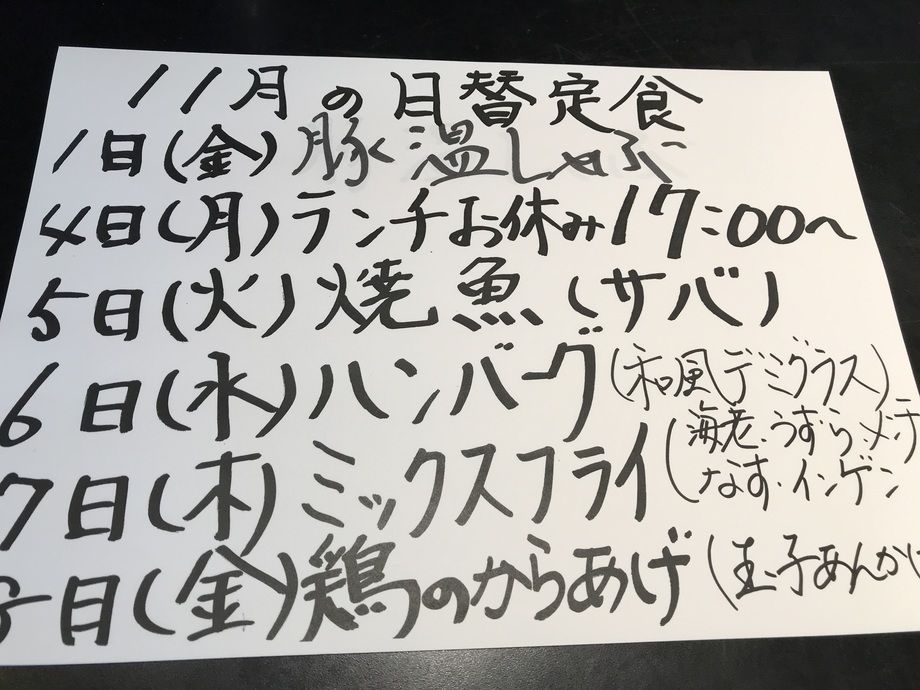 11月の日替定食
1日(金)豚温しゃぶ
4日(月)ランチお休み17:00〜
5日(火)焼魚(サバ)
6日(水)ハンバーグ(和風デミグラス)
7日(木)ミックスフライ(海老・うずら・メンチ
なす・インゲン
8日(金)鶏のからあげ(玉子あんかけ